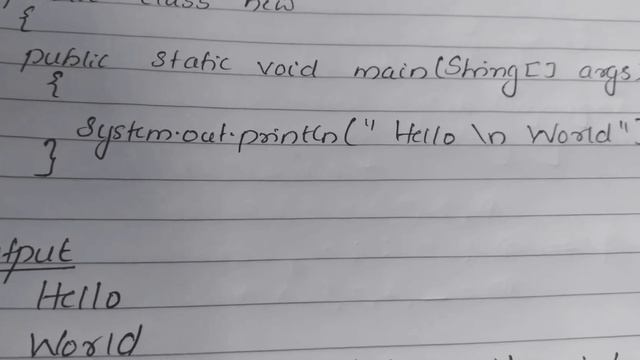 class new
{
public static void main(String[] args
{
System.out.println(" Hello \n World"
}
tput
Hello
World